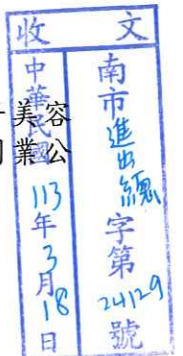 收文
南市進出總字第24129號
中華民國113年3月18日
美容
業公